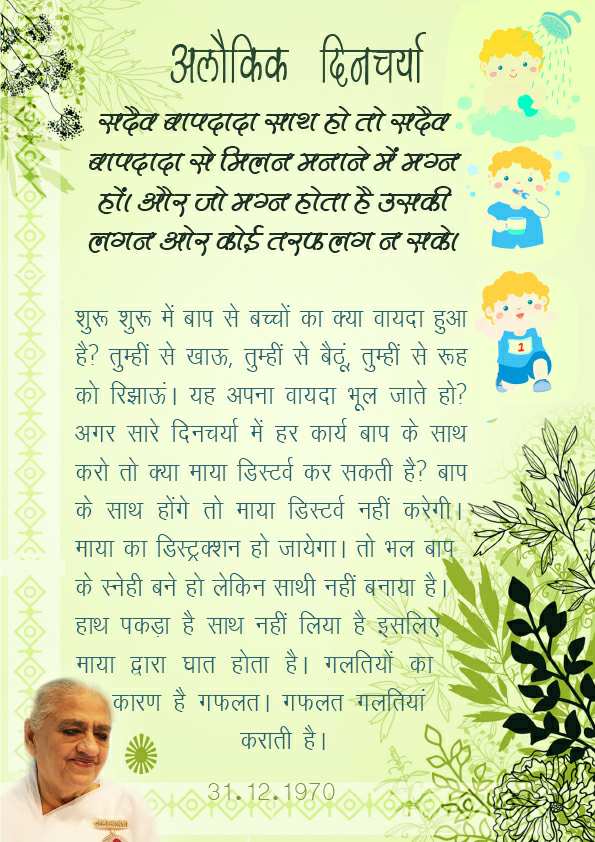 अलौकिक दिनचर्या
सदैव बापदादा साथ हो तो सदैव
बापदादा से मिलन मनाने में मग्न
हों। और जो मग्न होता है उसकी
लगन ओर कोई तरफ लग न सके।
शुरू शुरू में बाप से बच्चों का क्या वायदा हुआ
है? तुम्हीं से खाऊ, तुम्हीं से बैठूं, तुम्हीं से रूह
को रिझाऊं। यह अपना वायदा भूल जाते हो?
अगर सारे दिनचर्या में हर कार्य बाप के साथ
करो तो क्या माया डिस्टर्व कर सकती है? बाप
के साथ होंगे तो माया डिस्टर्व नहीं करेगी।
माया का डिस्ट्रक्शन हो जायेगा। तो भल बाप
के स्नेही बने हो लेकिन साथी नहीं बनाया है।
हाथ पकड़ा है साथ नहीं लिया है इसलिए
माया द्वारा घात होता है। गलतियों का
कारण है गफलत। गफलत गलतियां
कराती है।
31.12.1970
1